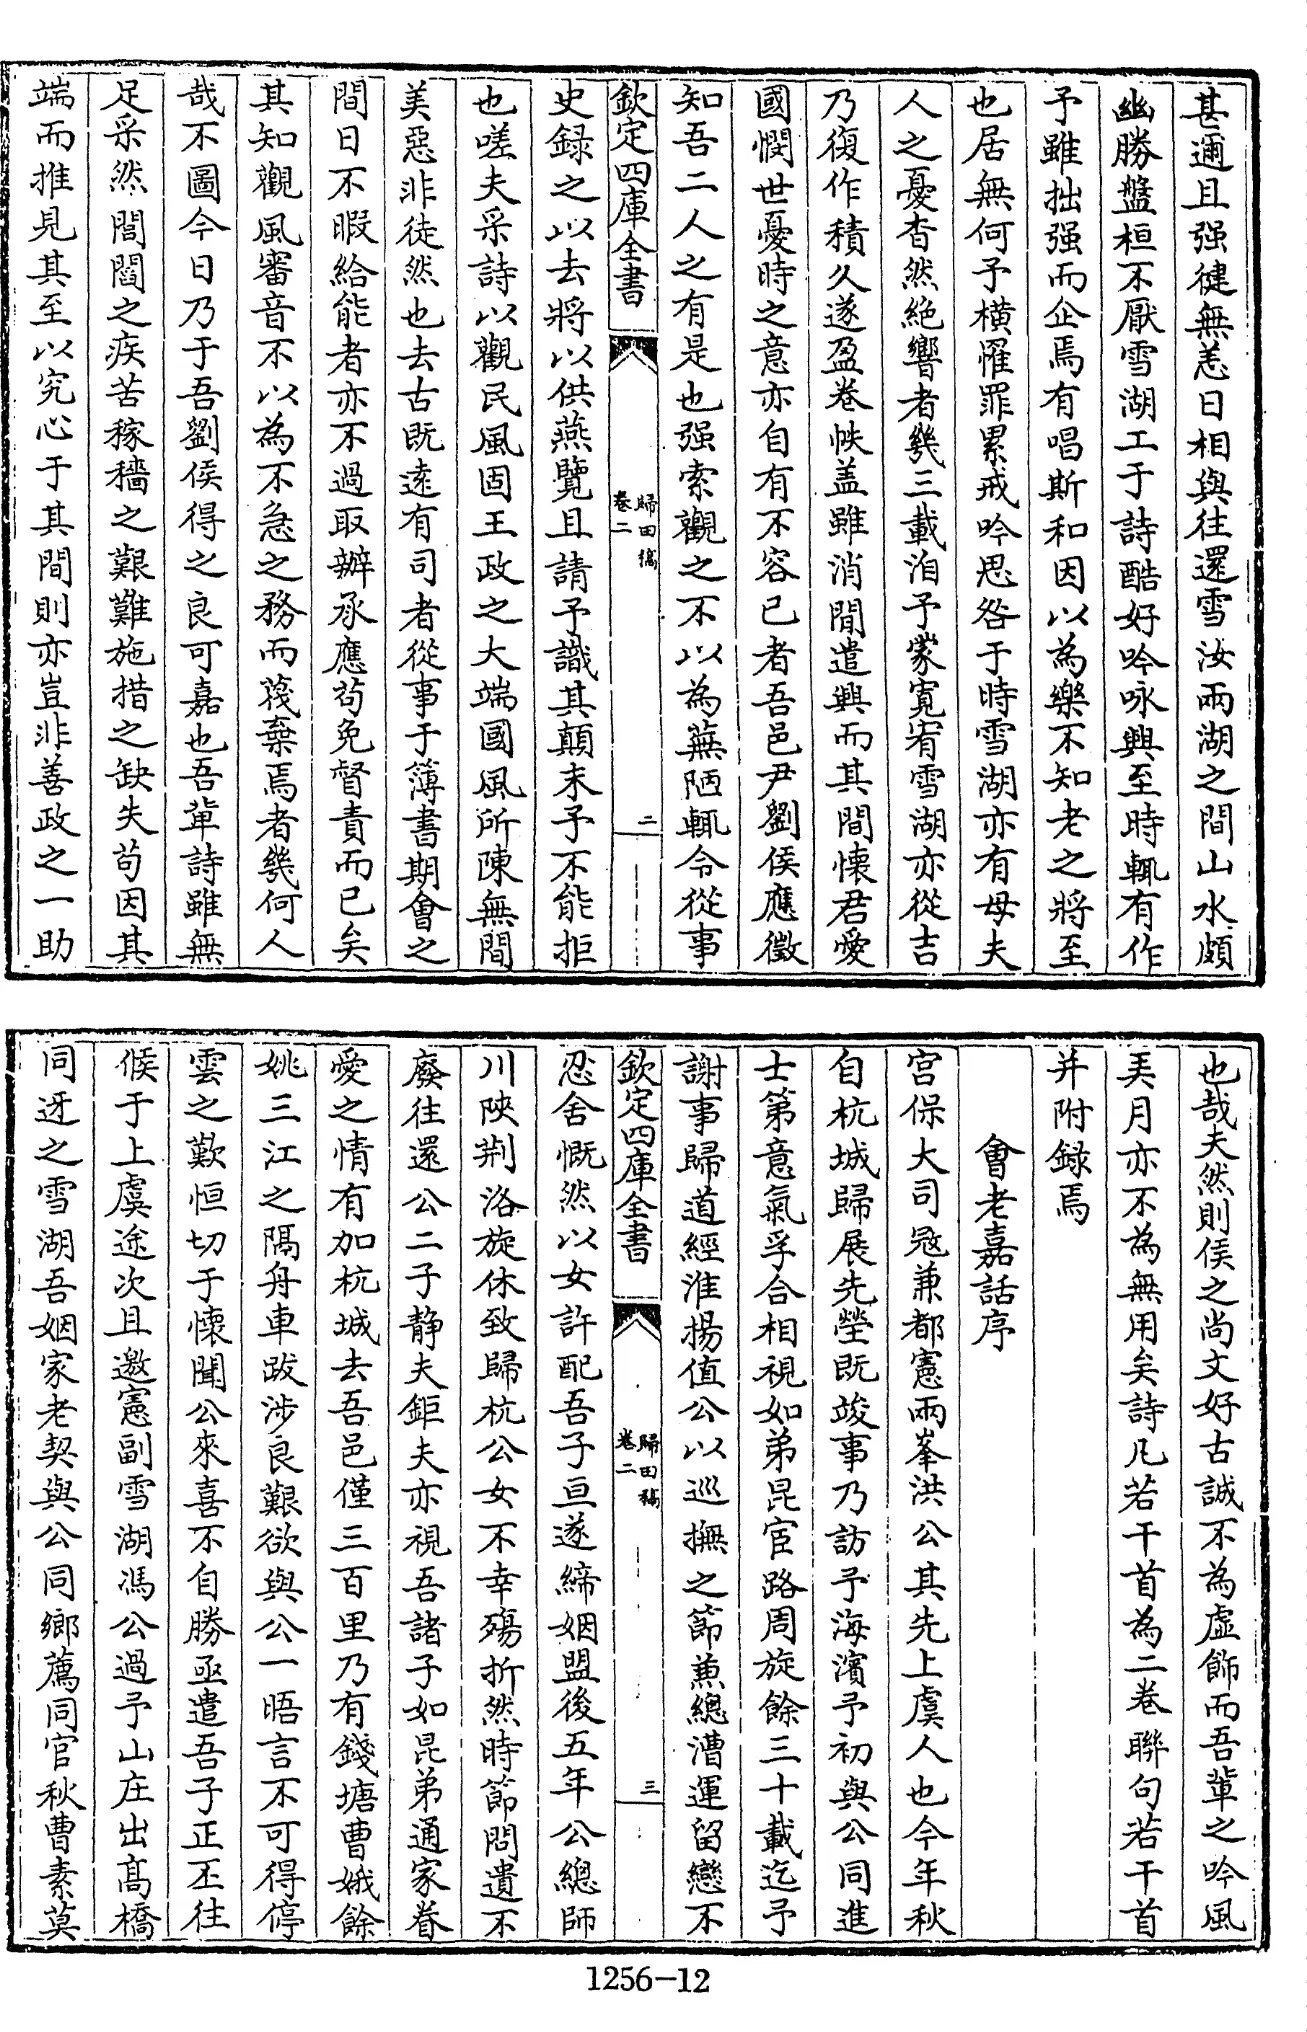 甚邇且强健無恙日相與往還雪汝兩湖之間山水頗
幽勝盤桓不厭雪湖工于詩酷好吟咏興至時輒有作
予雖拙强而企焉有唱斯和因以為樂不知老之將至
也居無何予橫罹罪累戒吟思咎于時雪湖亦有母夫
人之憂杳然絶響者幾三載洎予蒙寛宥雪湖亦從吉
乃復作積久遂盈卷帙盖雖消閒遣興而其間懷君愛
國憫世憂時之意亦自有不容已者吾邑尹劉侯應徵
知吾二人之有是也强索觀之不以為蕪陋輒令從事
欽定四庫全書
歸田稿
卷二
二
史録之以去將以供燕覽且請予識其顛末予不能拒
也嗟夫采詩以觀民風固王政之大端國風所陳無間
美惡非徒然也去古既逺有司者從事于簿書期會之
間日不暇給能者亦不過取辦承應苟免督責而已矣
其知觀風審音不以為不急之務而蔑棄焉者幾何人
哉不圖今日乃于吾劉侯得之良可嘉也吾軰詩雖無
足采然閭閻之疾苦稼穡之艱難施措之缺失苟因其
端而推見其至以究心于其間則亦豈非善政之一助
也哉夫然則侯之尚文好古誠不為虛飾而吾軰之吟風
美月亦不為無用矣詩凡若干首為二卷聯句若干首
并附録焉
會老嘉話序
宫保大司寇兼都憲兩峯洪公其先上虞人也今年秋
自杭城歸展先塋既竣事乃訪予海濱予初與公同進
士第意氣孚合相視如弟昆宦路周旋餘三十載迄予
謝事歸道經淮揚值公以巡撫之節兼總漕運留戀不
欽定四庫全書
歸田稿
卷二
三
忍舍慨然以女許配吾子亘遂締姻盟後五年公總師
川陜荆洛旋休致歸杭公女不幸殤折然時節問遺不
廢往還公二子静夫鉅夫亦視吾諸子如昆弟通家眷
愛之情有加杭城去吾邑僅三百里乃有錢塘曹娥餘
姚三江之隔舟車跋涉良艱欲與公一晤言不可得停
雲之歎恒切于懷聞公來喜不自勝亟遣吾子正丕往
候于上虞途次且邀憲副雪湖馮公過予山庄出髙橋
同迓之雪湖吾姻家老契與公同鄉薦同官秋曹素莫
1256-12